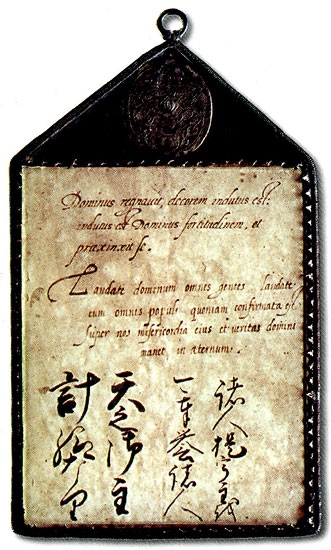 Dominus regnauit, decorem indutus est:
indutus est Dominus fortitudinem, et
præcinxit se.
Laudate dominum omnes gentes laudate
eum omnes populi quoniam confirmata est
super nos misericordia eius et veritas domini
manet in æternum.
諸人
一 諸人
天之御主
計